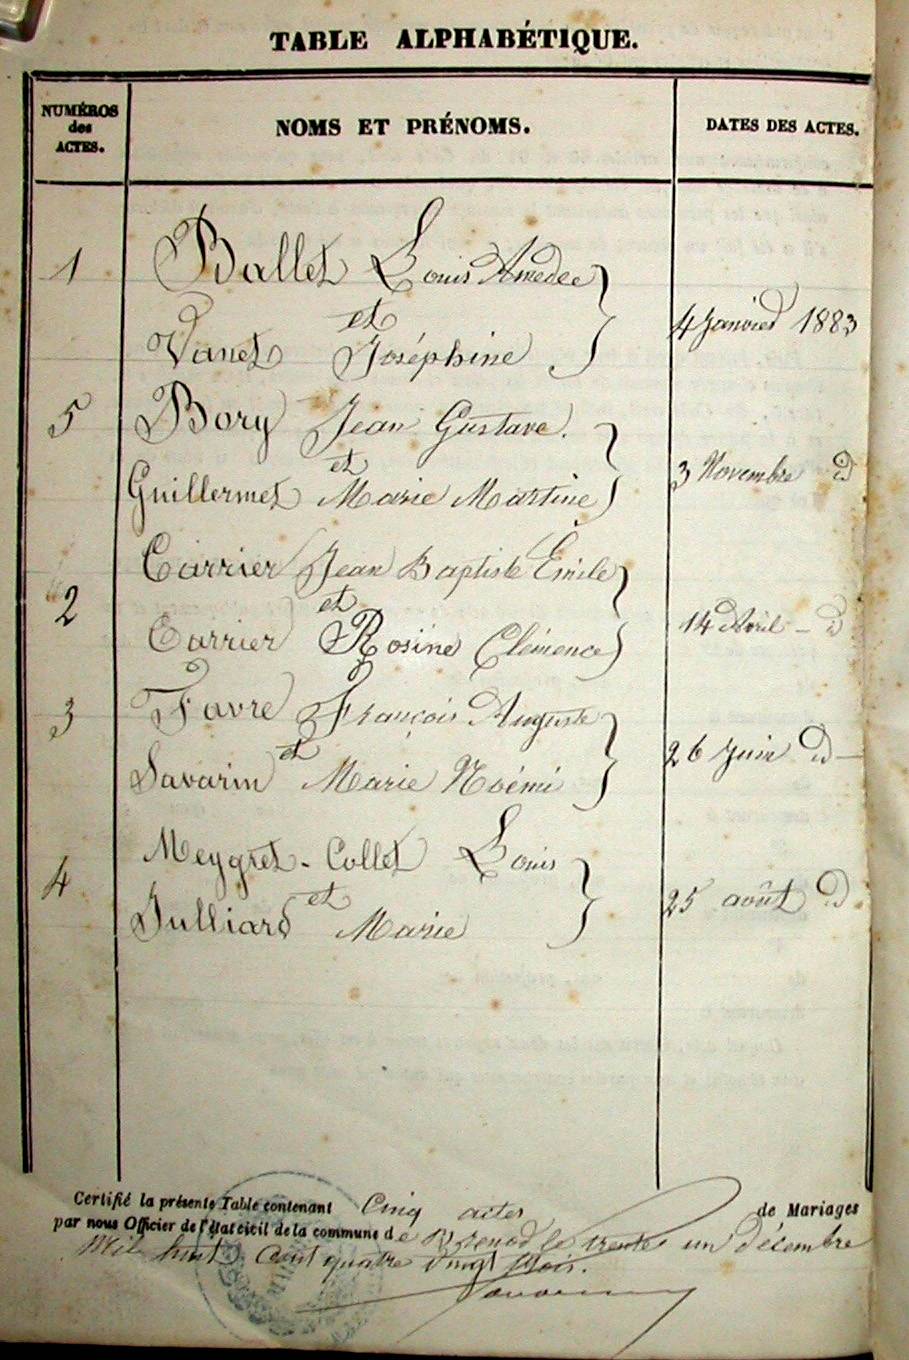 TABLE ALPHABÉTIQUE.
NUMÉROS
des
ACTES.
NOMS ET PRÉNOMS.
DATES DES ACTES.
1 Ballet Louis Amedee
et
4 Janvier 1883
Vanet Joséphine
5 Bory Jean Gustave.
et
3 Novembre d
Guillermet Marie Martine
Carrier Jean Baptiste Emile
2 et
14 Avril - d
Carrier Rosine Clémence
3 Favre François Auguste
et
26 Juin d -
Savarin Marie Noémi
Meygret-Collet Louis
4 et
25 août d
Julliard Marie
Certifié la présente Table contenant Cinq actes de Mariages
par nous Officier de l'état civil de la commune de Brénod le trente un décembre
Mil huit Cent quatre vingt trois.